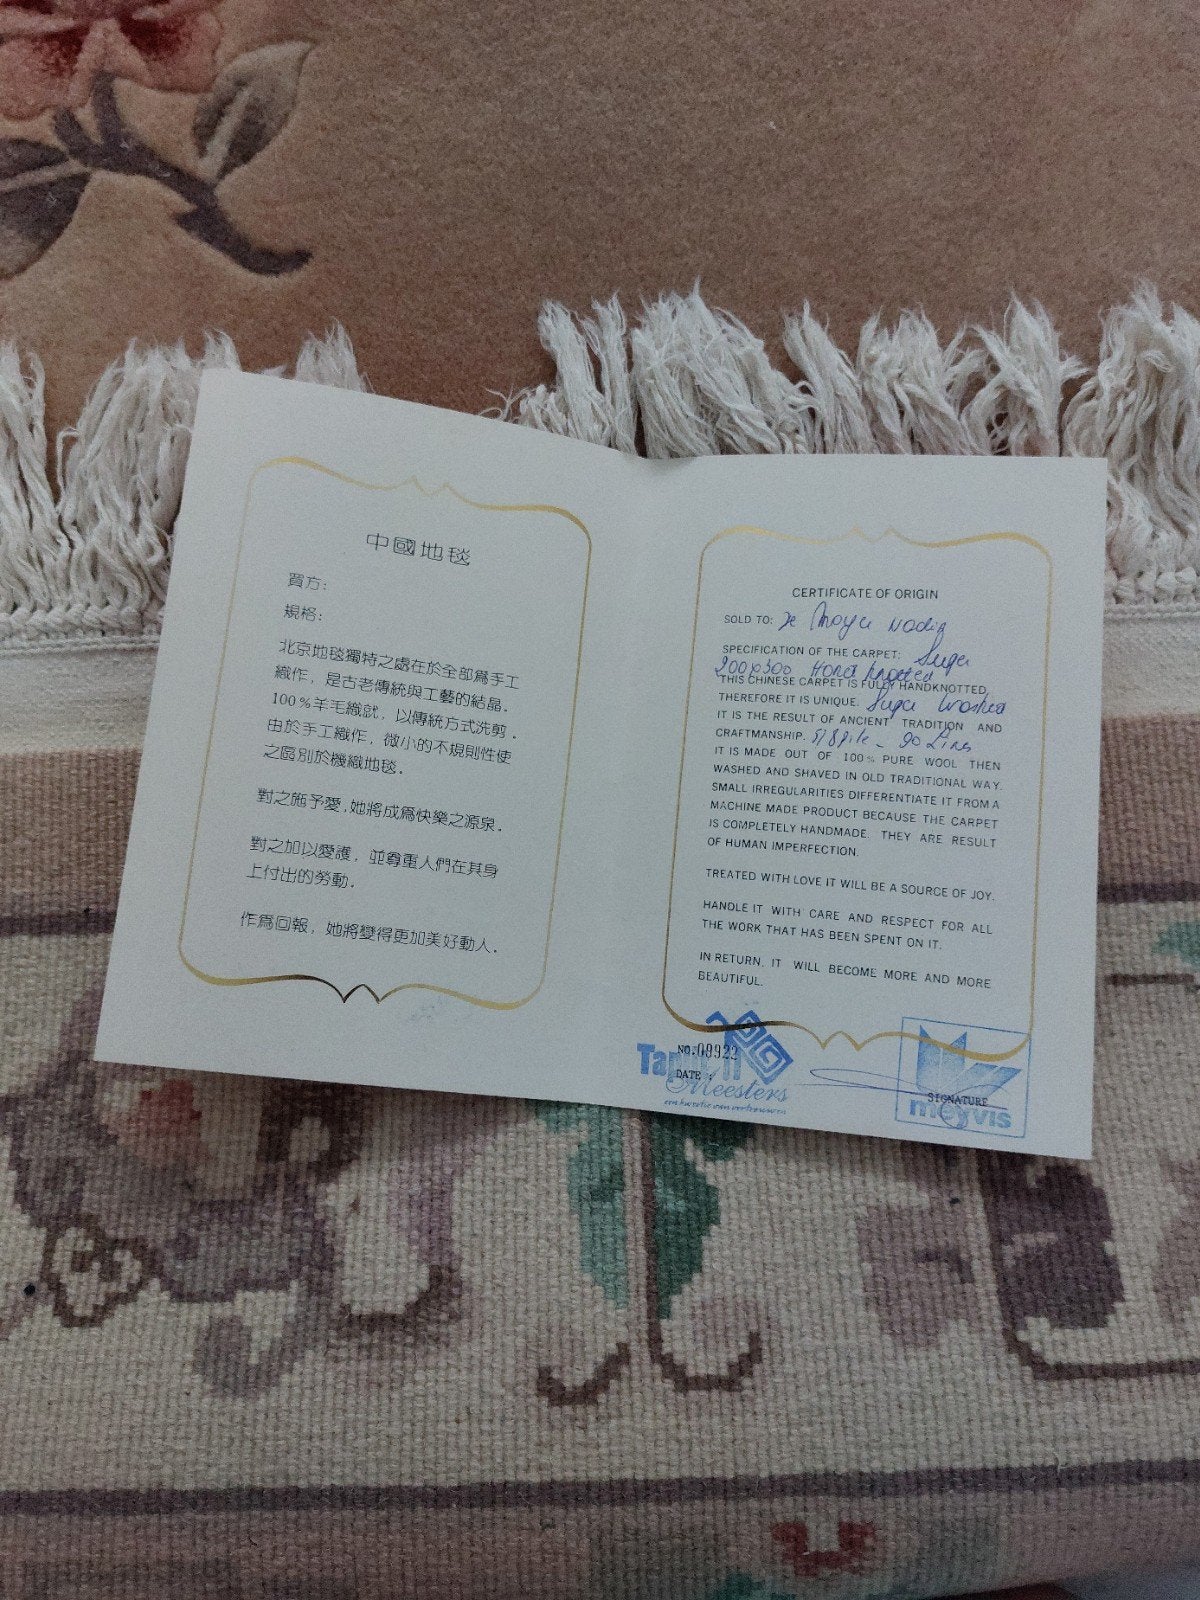 中國地毯
買方:
規格:
北京地毯獨特之處在於全部爲手工
織作，是古老傳統與工藝的結晶。
100%羊毛織就，以傳統方式洗剪。
由於手工織作，微小的不規則性使
之區別於機織地毯。
對之施予愛，她將成爲快樂之源泉。
對之加以愛護，並尊重人們在其身
上付出的勞動。
作爲回報，她將變得更加美好動人。
CERTIFICATE OF ORIGIN
SOLD TO:
SPECIFICATION OF THE CARPET: Super
200x300 Hand knotted
THIS CHINESE CARPET IS FULLY HANDKNOTTED,
THEREFORE IT IS UNIQUE. Super Washed
IT IS THE RESULT OF ANCIENT TRADITION AND
CRAFTMANSHIP. 5/8 pile - 90 Lines
IT IS MADE OUT OF 100% PURE WOOL THEN
WASHED AND SHAVED IN OLD TRADITIONAL WAY.
SMALL IRREGULARITIES DIFFERENTIATE IT FROM A
MACHINE MADE PRODUCT BECAUSE THE CARPET
IS COMPLETELY HANDMADE. THEY ARE RESULT
OF HUMAN IMPERFECTION.
TREATED WITH LOVE IT WILL BE A SOURCE OF JOY.
HANDLE IT WITH CARE AND RESPECT FOR ALL
THE WORK THAT HAS BEEN SPENT ON IT.
IN RETURN, IT WILL BECOME MORE AND MORE
BEAUTIFUL.
NO.09922
DATE:
Meesters
een kwestie van vertrouwen
SIGNATURE
meyvis